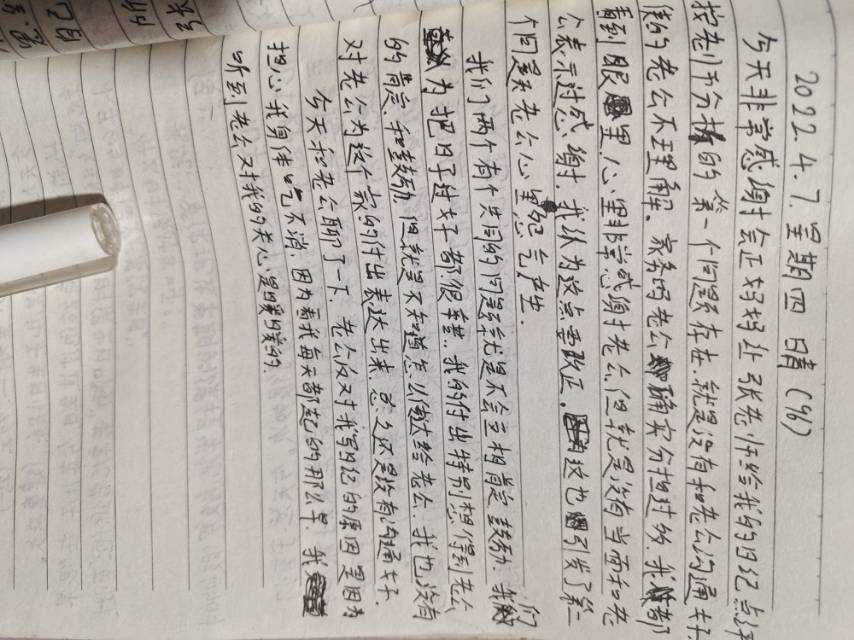 2022.4.7. 星期四 晴 (96)
今天非常感谢会正妈妈让张老师给我的日记点评
按老师分析的第一个问题存在.就是没有和老公沟通好
使的老公不理解.家务吗老公确实分担过多.我都
看到眼里.心里非常感谢老公.但就是没有当面和老
公表示过感谢.我认为这点要改正.这也引发了第二
个问题老公心里怨气产生.
我们两个有个共同的问题就是不会互相肯定鼓励.我们
为把日子过好都很辛苦.我的付出特别想得到老公
的肯定.和鼓励.但就是不知道怎么传达给老公.我也没有
对老公为这个家的付出表达出来.总之还是没有沟通好.
今天和老公聊了一下.老公反对我写日记的原因是因为
担心我身体吃不消.因为看我每天都起的那么早.我
听到老公对我的关心.是暖暖的.